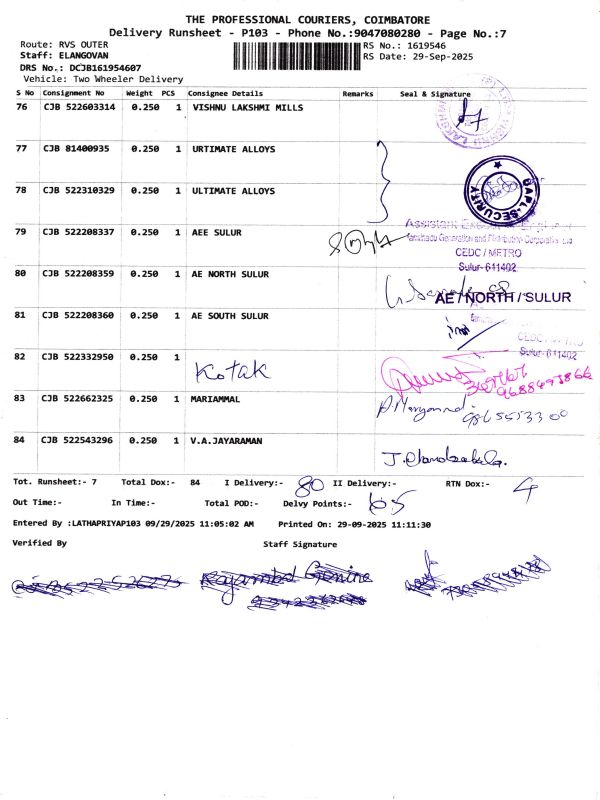 THE PROFESSIONAL COURIERS, COIMBATORE
Delivery Runsheet - P103 - Phone No.:9047080280 - Page No.:7
Route: RVS OUTER
Staff: ELANGOVAN
DRS No.: DCJB161954607
Vehicle: Two Wheeler Delivery
RS No.: 1619546
RS Date: 29-Sep-2025
S No Consignment No Weight PCS Consignee Details Remarks Seal & Signature
76 CJB 522603314 0.250 1 VISHNU LAKSHMI MILLS
77 CJB 81400935 0.250 1 URTIMATE ALLOYS
78 CJB 522310329 0.250 1 ULTIMATE ALLOYS
BAPL-SECURITY
79 CJB 522208337 0.250 1 AEE SULUR
Assistant
Generation and Distribution Corporation Ltd
CEDC / METRO
Sulur- 641402
80 CJB 522208359 0.250 1 AE NORTH SULUR
AE / NORTH / SULUR
81 CJB 522208360 0.250 1 AE SOUTH SULUR
CEDC / METRO
Sulur- 641402
82 CJB 522332950 0.250 1 Kotak
9688493866
83 CJB 522662325 0.250 1 MARIAMMAL
84 CJB 522543296 0.250 1 V.A.JAYARAMAN
Tot. Runsheet:- 7 Total Dox:- 84 I Delivery:- 80 II Delivery:- RTN Dox:- 4
Out Time:- In Time:- Total POD:- Delvy Points:- 65
Entered By :LATHAPRIYAP103 09/29/2025 11:05:02 AM Printed On: 29-09-2025 11:11:30
Verified By Staff Signature